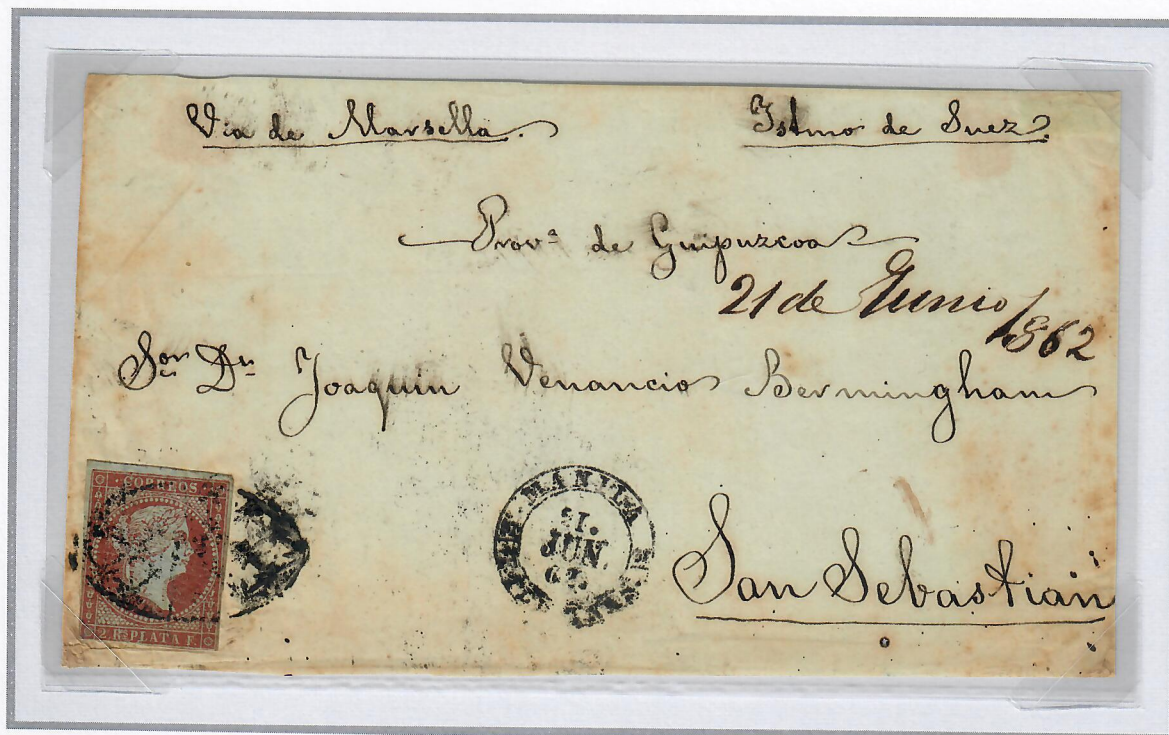 Via de Marsella.
Istmo de Suez.
Provᵃ de Guipuzcoa
21 de Junio 1862
Sᵒʳ Dⁿ Joaquin Venancio Bermingham
CORREOS
2 Rˢ PLATA F.
MANILA
21.
JUN.
62
San Sebastian